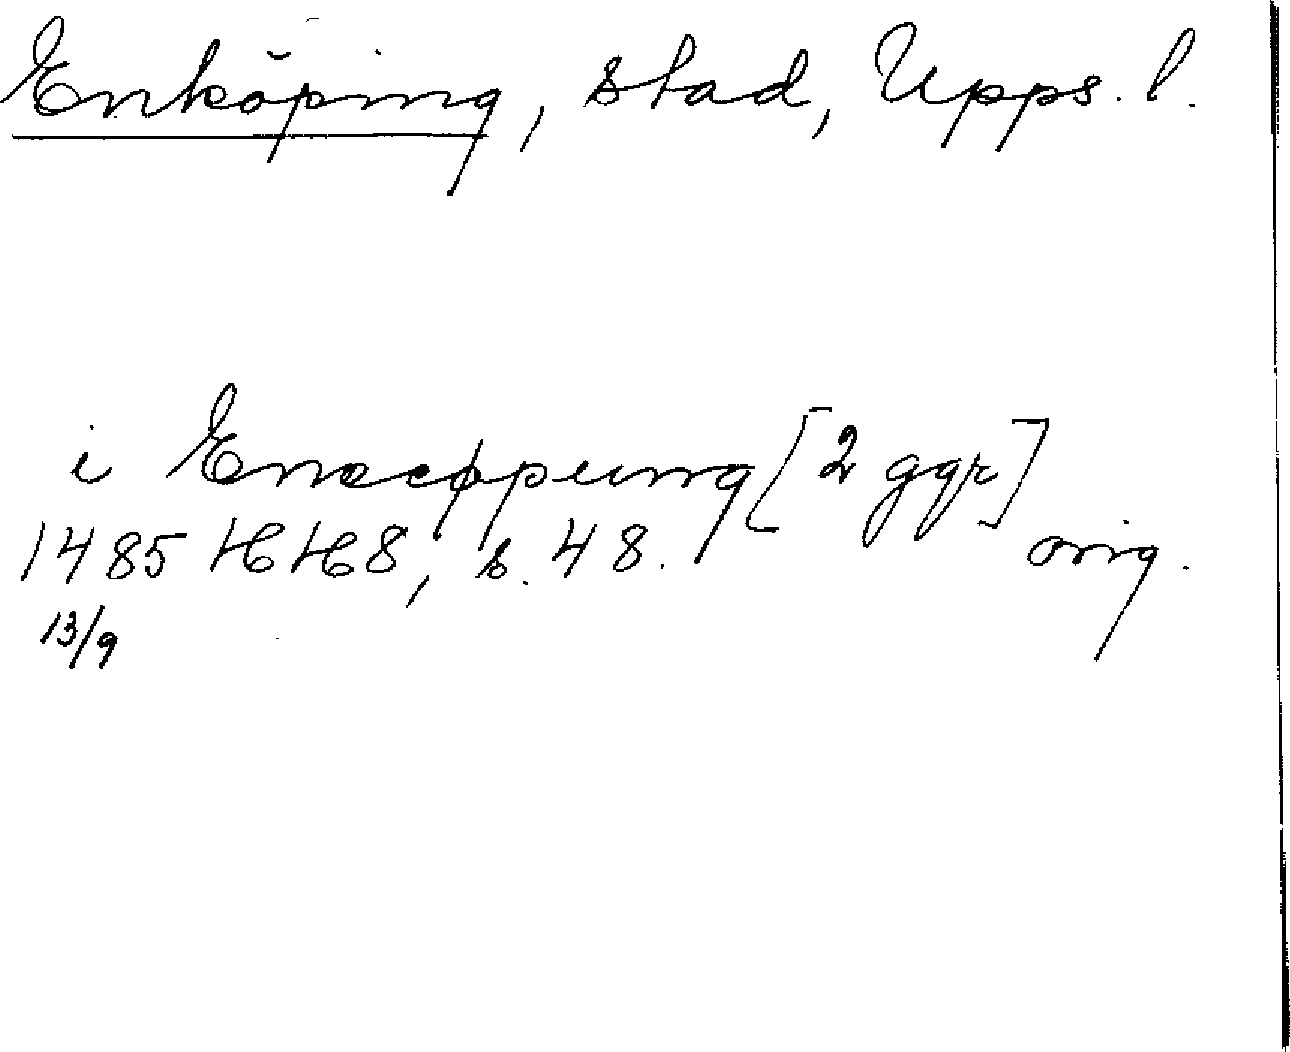 Enköping, stad, Upps. l.
i Enecøpung [2 ggr]
1485 HH 8, s. 48. orig.
13/9